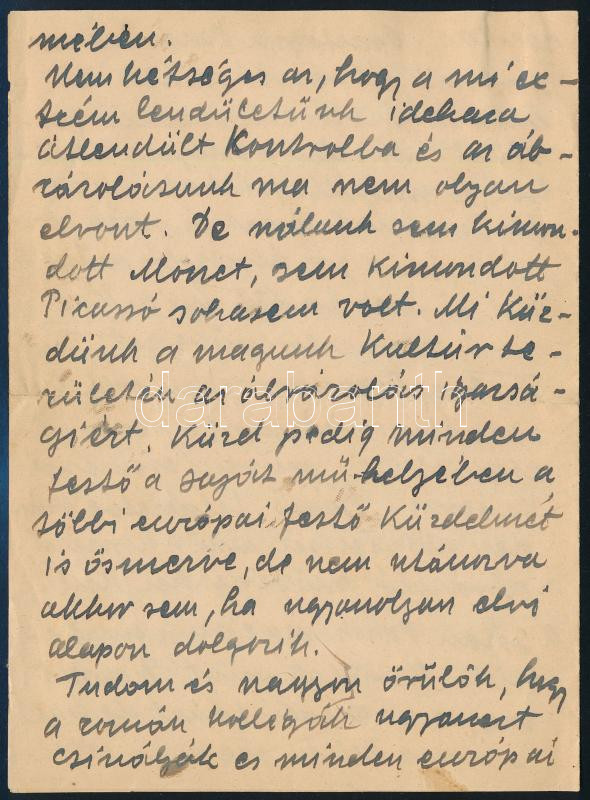 mében.
Nem kétséges az, hogy a mi ex-
trém lendületünk idehaza
átlendült Kontrolba és az áb-
rázolásunk ma nem olyan
elvont. De nálunk sem kimon-
dott Monet, sem kimondott
Picassó sohasem volt. Mi Küz-
dünk a magunk Kultúr te-
rületén az ábrázolás igazsá-
giért. Küzd pedig minden
festő a saját műhelyében a
többi európai festő Küzdelmét
is ösmerve, de nem utánozva
akkor sem, ha ugyanolyan elvi
alapon dolgozik.
Tudom és nagyon örülök, hogy
a román Kollegák ugyanezt
csinálják es minden európai
darabanth